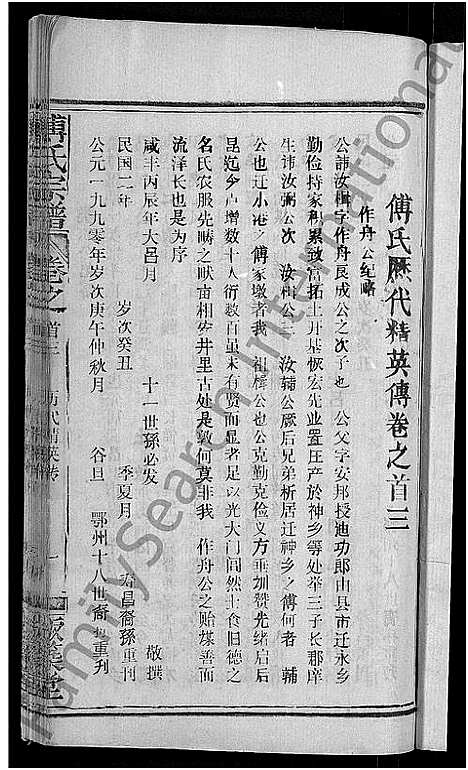 傅氏歷代精英傳卷之首三
作舟公纪略
公諱汝楫字作舟良成公之次子也 公父字安邦授迪功郎由县市迁永乡
勤俭持家积累致富拓土开基恢宏先业置庄产於神乡等处举三子长郡庠
生讳汝弼公次 汝楫公三 汝辅公厥后兄弟析居迁神乡之傅何者 辅
公也迁小港之傅家墩者我 祖楫公也公克勤克俭义方垂训赞先绪启后
昆迄今户增数十人衍数百虽未有贤而显者足以光大门闾然士食旧德之
名氏农服先畴之畎亩相安井里古处是敦何莫非我 作舟公之贻谋善而
流泽长也是为序
咸丰丙辰年大吕月 十一世孙必发 敬撰
民国二年 岁次癸丑 季夏月 裔孙重刊
公元一九九零年岁次庚午仲秋月 谷旦 鄂州十八世裔 重刊
傅氏宗譜 卷之首三 历代精英传 一
FamilySearch International